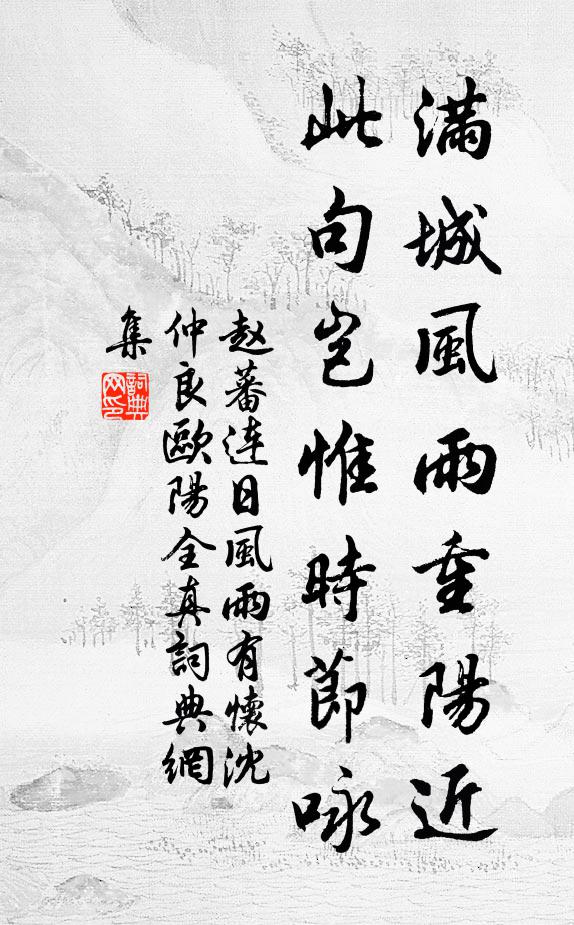 滿城風雨重陽近
此句豈惟時節咏
赵蕃連日風雨有懷沈
仲良歐陽全真詞典網
集
詞典
网印